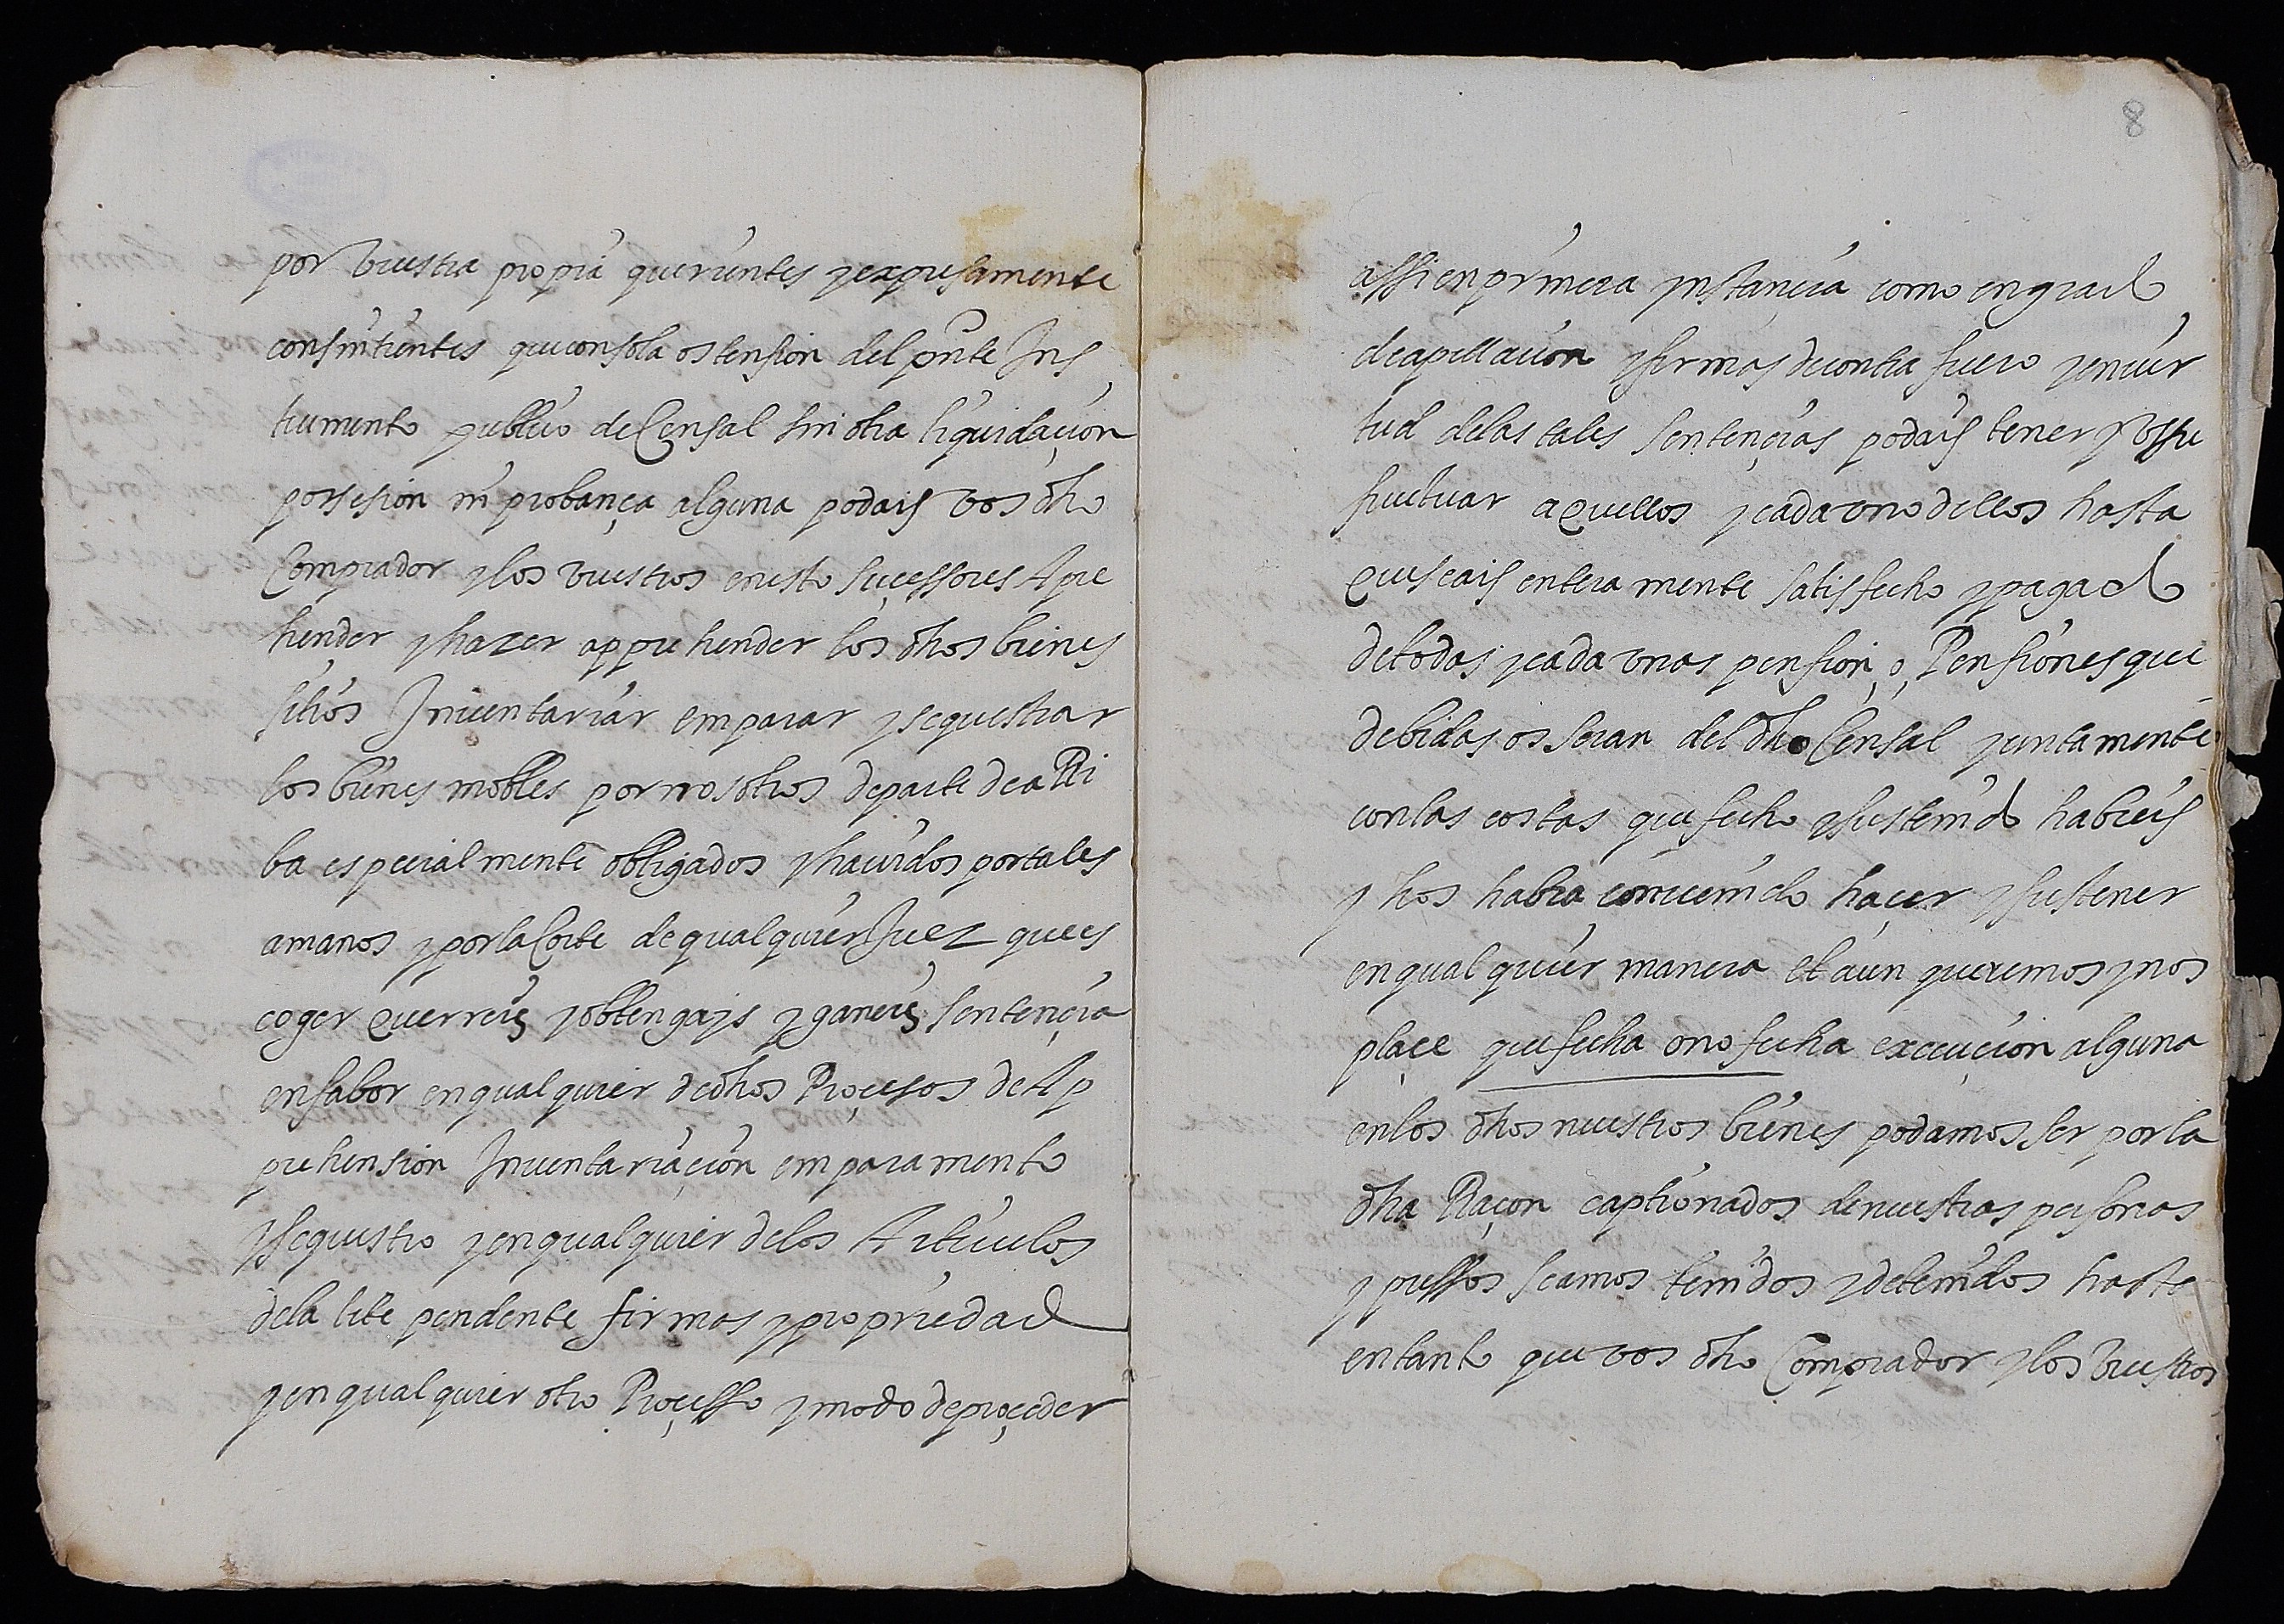 por vuestra propia querientes y expresamente
consintientes que con sola ostension del pnte Ins
trumento publico de Censal sin otra liquidaçion
porsesion ni probança alguna podais vos dho
Comprador y los vuestros en esto suçessores Apre
hender y hazer apprehender los dhos bienes
sitios Inventariar emparar y sequestrar
los bienes mobles por nosotros de parte de aRri
ba especialmente obligados y havidos por tales
a manos y por la Corte de qualquier Juez que es
coger querreis y obtengays y ganeis sentençia
en fabor en qualquier de dhos Proçesos de Ap
prehension Inventariaçion emparamento
y sequestro y en qualquier de los Articulos
de la lite pendente firmas y propriedad
y en qualquier otro Proçesso y modo de proçeder
8
assi en primera ynstancia como en grado
de apellacion y firmas de contra fuero y en vir
tud de las tales sentençias podais tener y ussu
fructuar aquellos y cada uno dellos hasta
que seais enteramente satisfecho y pagado
de todas y cada unas pension o Pensiones que
debidas os seran del dho Censal juntamente
con las costas que fecho y sustenido habreis
y hos habra convenido haçer y sustener
en qualquier manera et aun queremos y nos
plaçe que fecha o no fecha execuçion alguna
en los dhos nuestros bienes podamos ser por la
dha Raçon captionados de nuestras personas
y pressos seamos tenidos y detenidos hasta
en tanto que vos dho Comprador y los vuestros